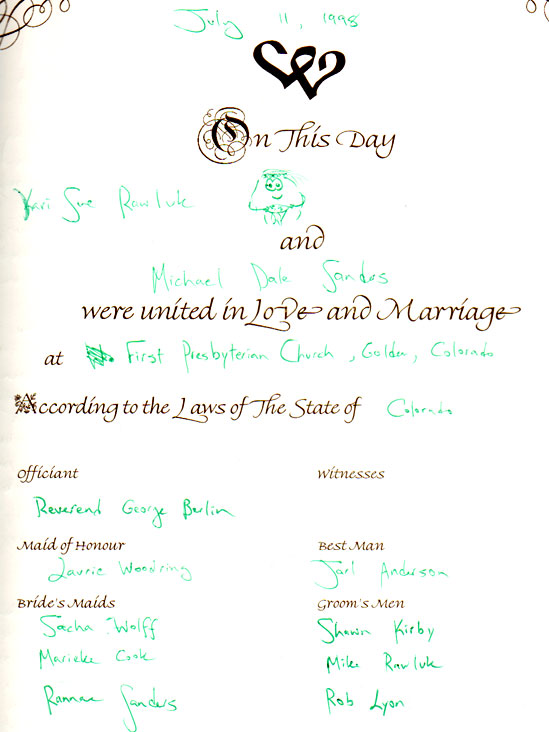 July 11, 1998
On This Day
Kari Sue Rawluk
and
Michael Dale Sanders
were united in Love and Marriage
at First Presbyterian Church, Golden, Colorado
According to the Laws of The State of Colorado
Officiant
Reverend George Berlin
Witnesses
Maid of Honour
Laurie Woodring
Best Man
Jarl Anderson
Bride's Maids
Sacha Wolff
Marieke Cook
Rannae Sanders
Groom's Men
Shawn Kirby
Mike Rawluk
Rob Lyon